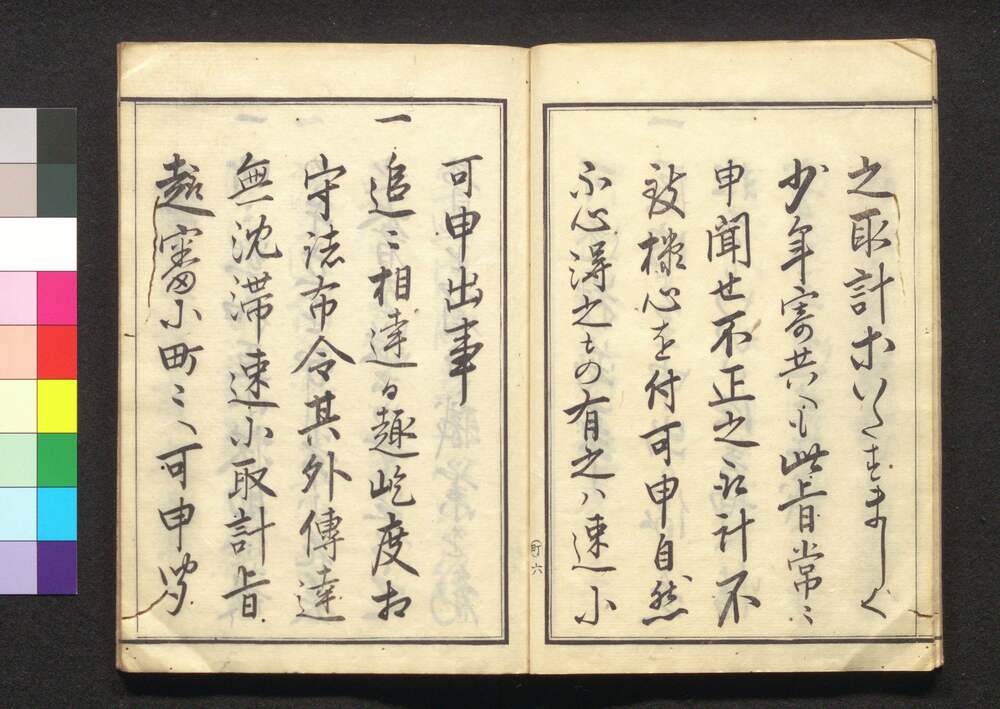 之取計等いたすましく
少年寄共へも此旨常〻
申聞せ不正之取計不
致様心を付可申自然
不心得之もの有之ハ速に
町六
可申出事
一 追〻相達る趣屹度相
守諸布令其外傳達
無沈滞速に取計旨
趣審に町〻へ可申